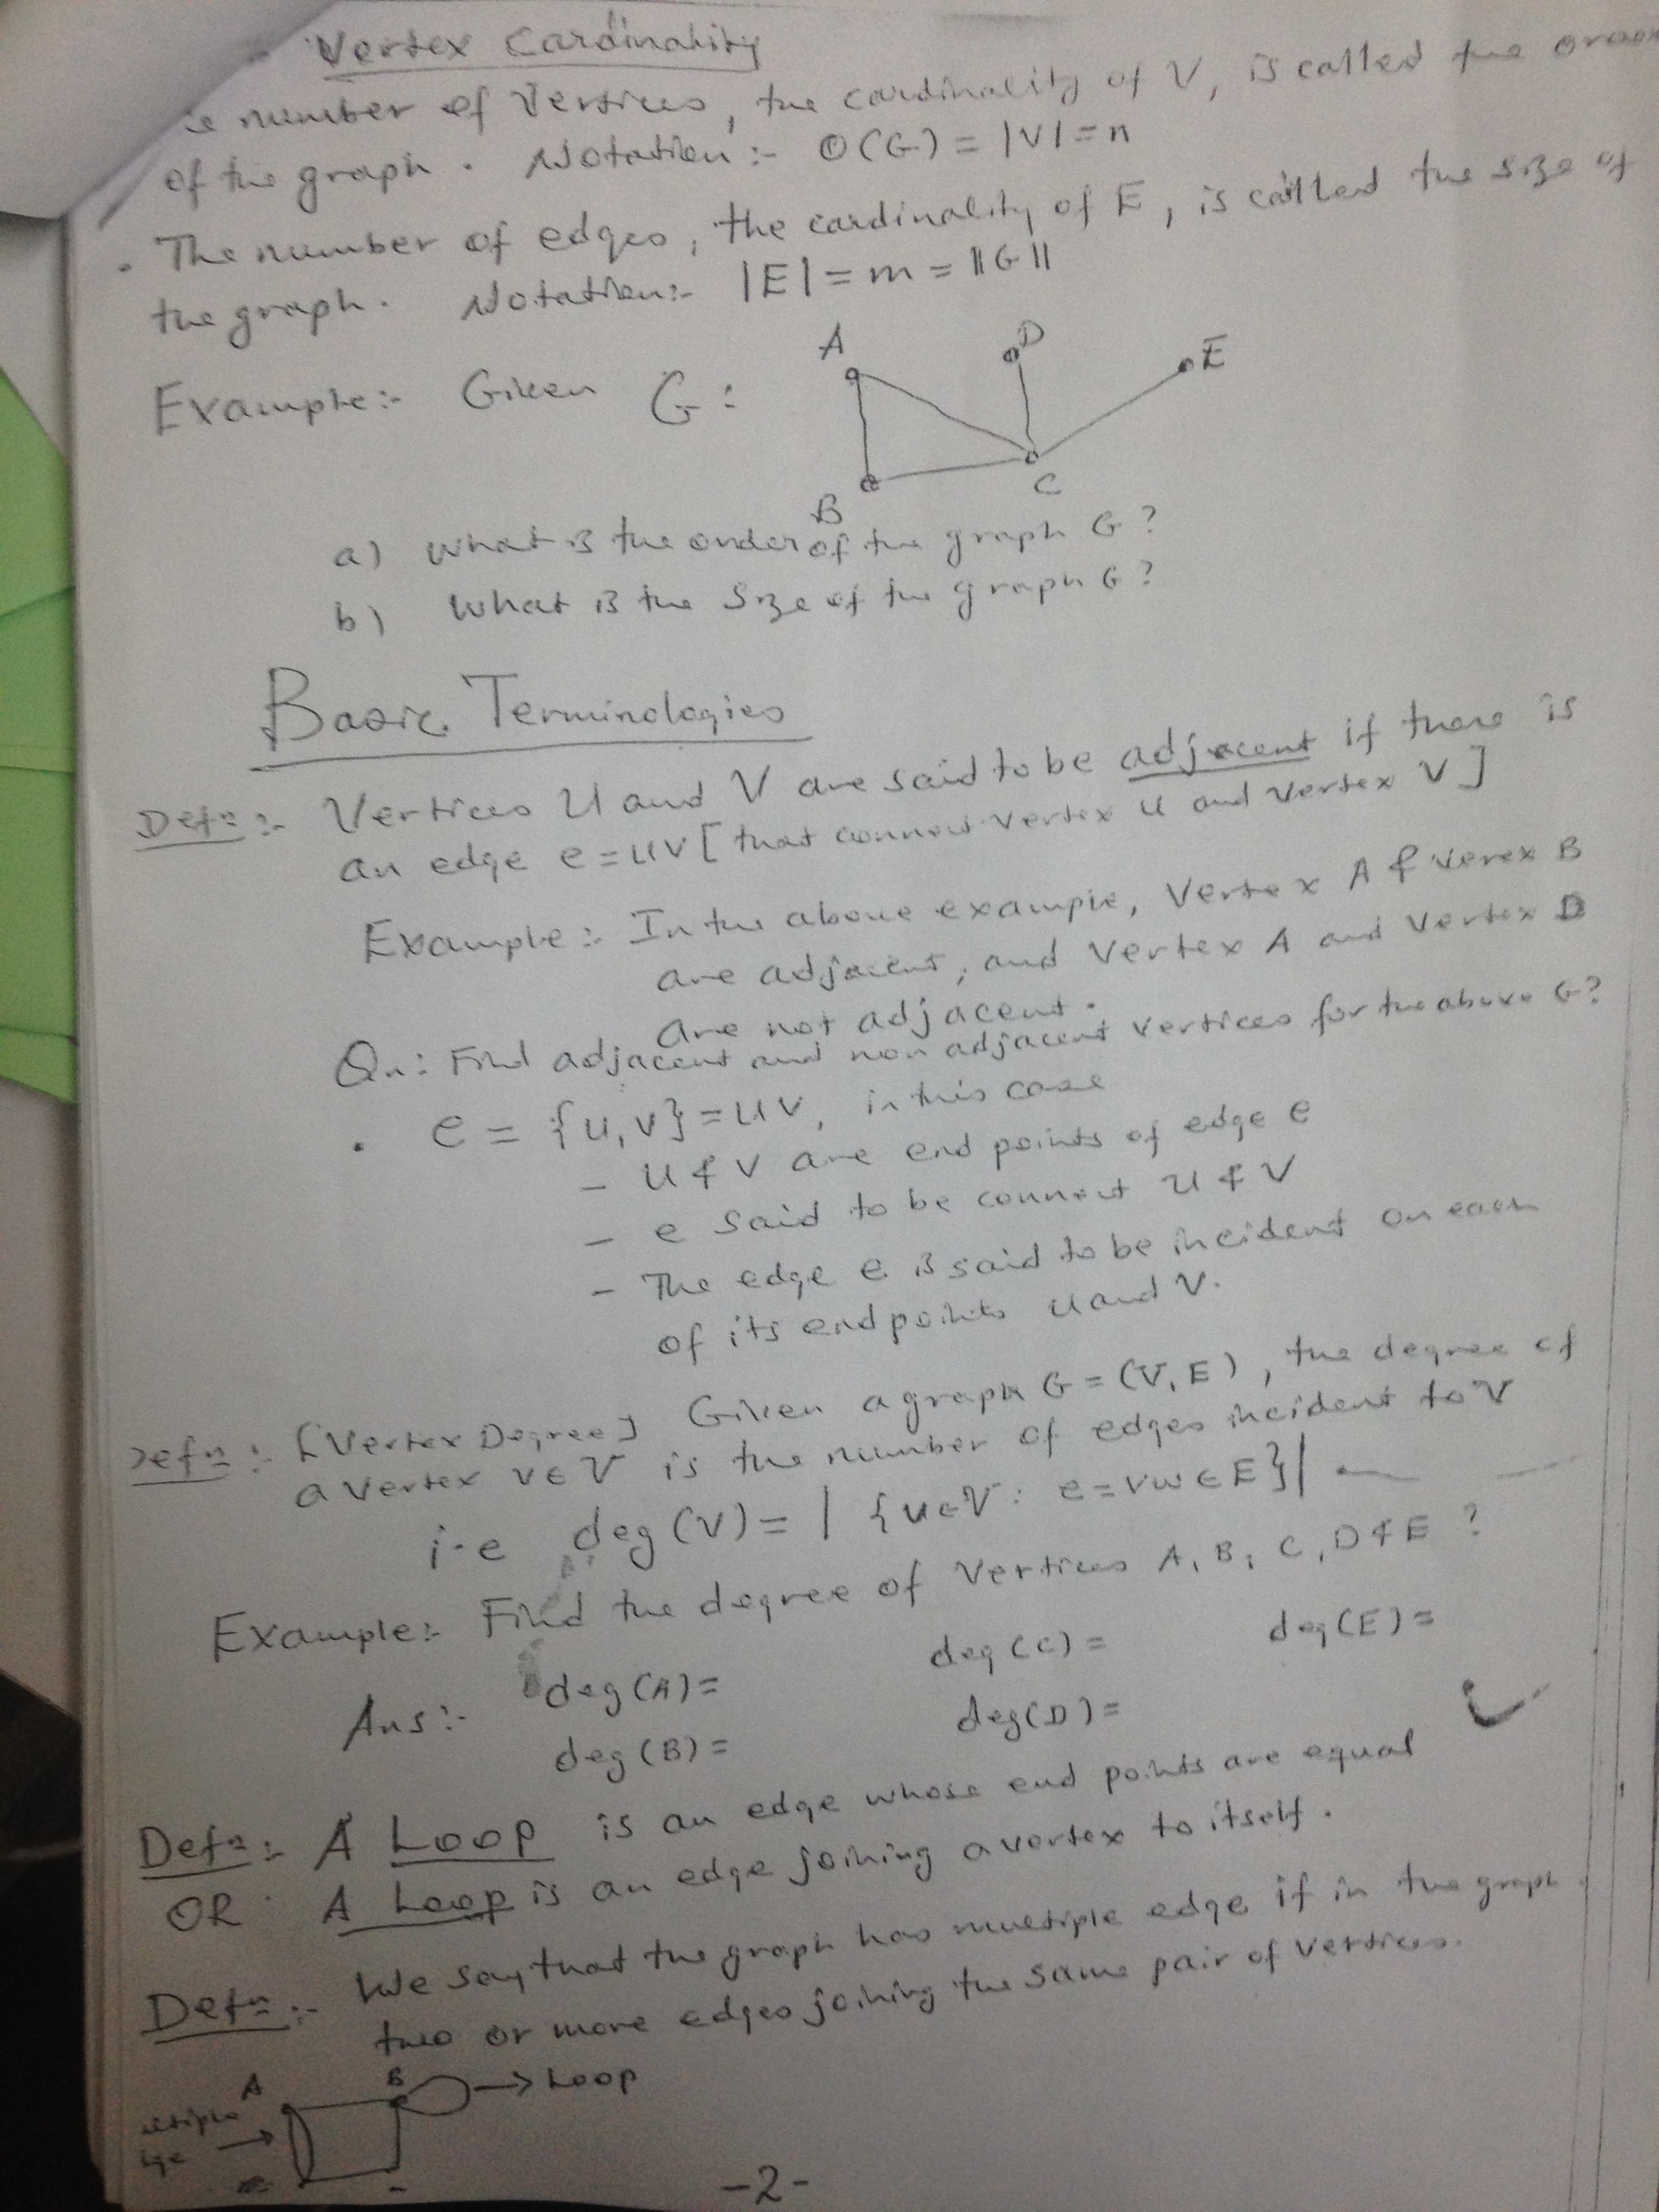 Vertex Cardinality
number of Vertices, the cardinality of V, is called the order
of the graph. Notation:- O(G) = |V| = n
. The number of edges, the cardinality of E, is called the size of
the graph. Notation:- |E| = m = ||G||
Example:- Given G:
A
D
E
B
C
a) What is the order of the graph G?
b) What is the size of the graph G?
Basic Terminologies
Defn:- Vertices U and V are said to be adjacent if there is
an edge e = uv [that connect vertex u and vertex V]
Example:- In the above example, Vertex A & verex B
are adjacent, and Vertex A and Vertex D
are not adjacent.
Qn: Find adjacent and non adjacent vertices for the above G?
. e = {u, v} = uv, in this case
- u & v are end points of edge e
- e said to be connect u & v
- The edge e is said to be incident on each
of its endpoints u and v.
Defn:- [Vertex Degree] Given a graph G = (V, E), the degree of
a vertex v ∈ V is the number of edges incident to V
i.e deg(V) = | {u ∈ V : e = vw ∈ E}|
Example:- Find the degree of Vertices A, B, C, D & E ?
Ans:- deg(A) = deg(C) = deg(E) =
deg(B) = deg(D) =
Defn:- A Loop is an edge whose end points are equal
OR A Loop is an edge joining a vertex to itself.
Defn:- We say that the graph has multiple edge if in the graph
two or more edges joining the same pair of vertices.
A
B
→ Loop
-2-